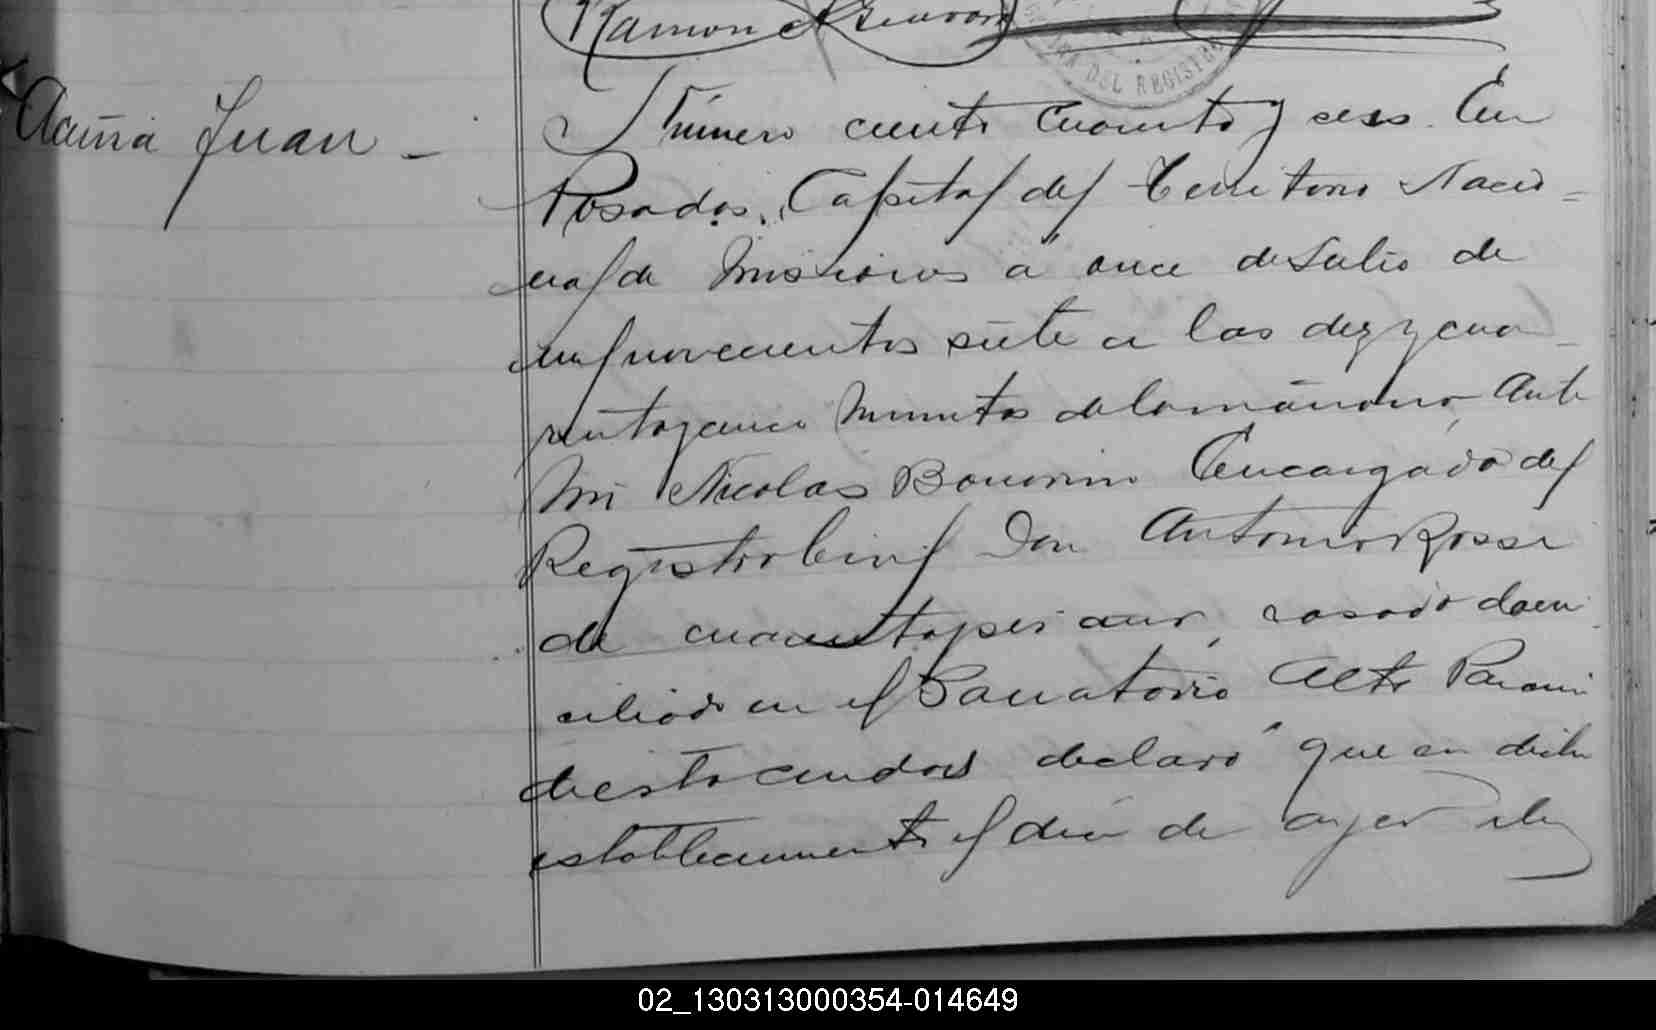 Ramon
RA DEL REGISTRO
Acuña Juan –
Número ciento cuarenta y seis. En
Posadas, Capital del Territorio Nacio-
nal de Misiones á once de Julio de
mil novecientos siete a las diez y cua-
renta y cinco minutos de la mañana Ante
mi Nicolas Bonorino Encargado del
Registro Civil Don Antonio Rossi
de cuarenta y seis años, casado domi-
ciliado en el Sanatorio Alto Paraná
de esta ciudad declaró que en dicho
establecimiento el dia de ayer á las
02_130313000354-014649